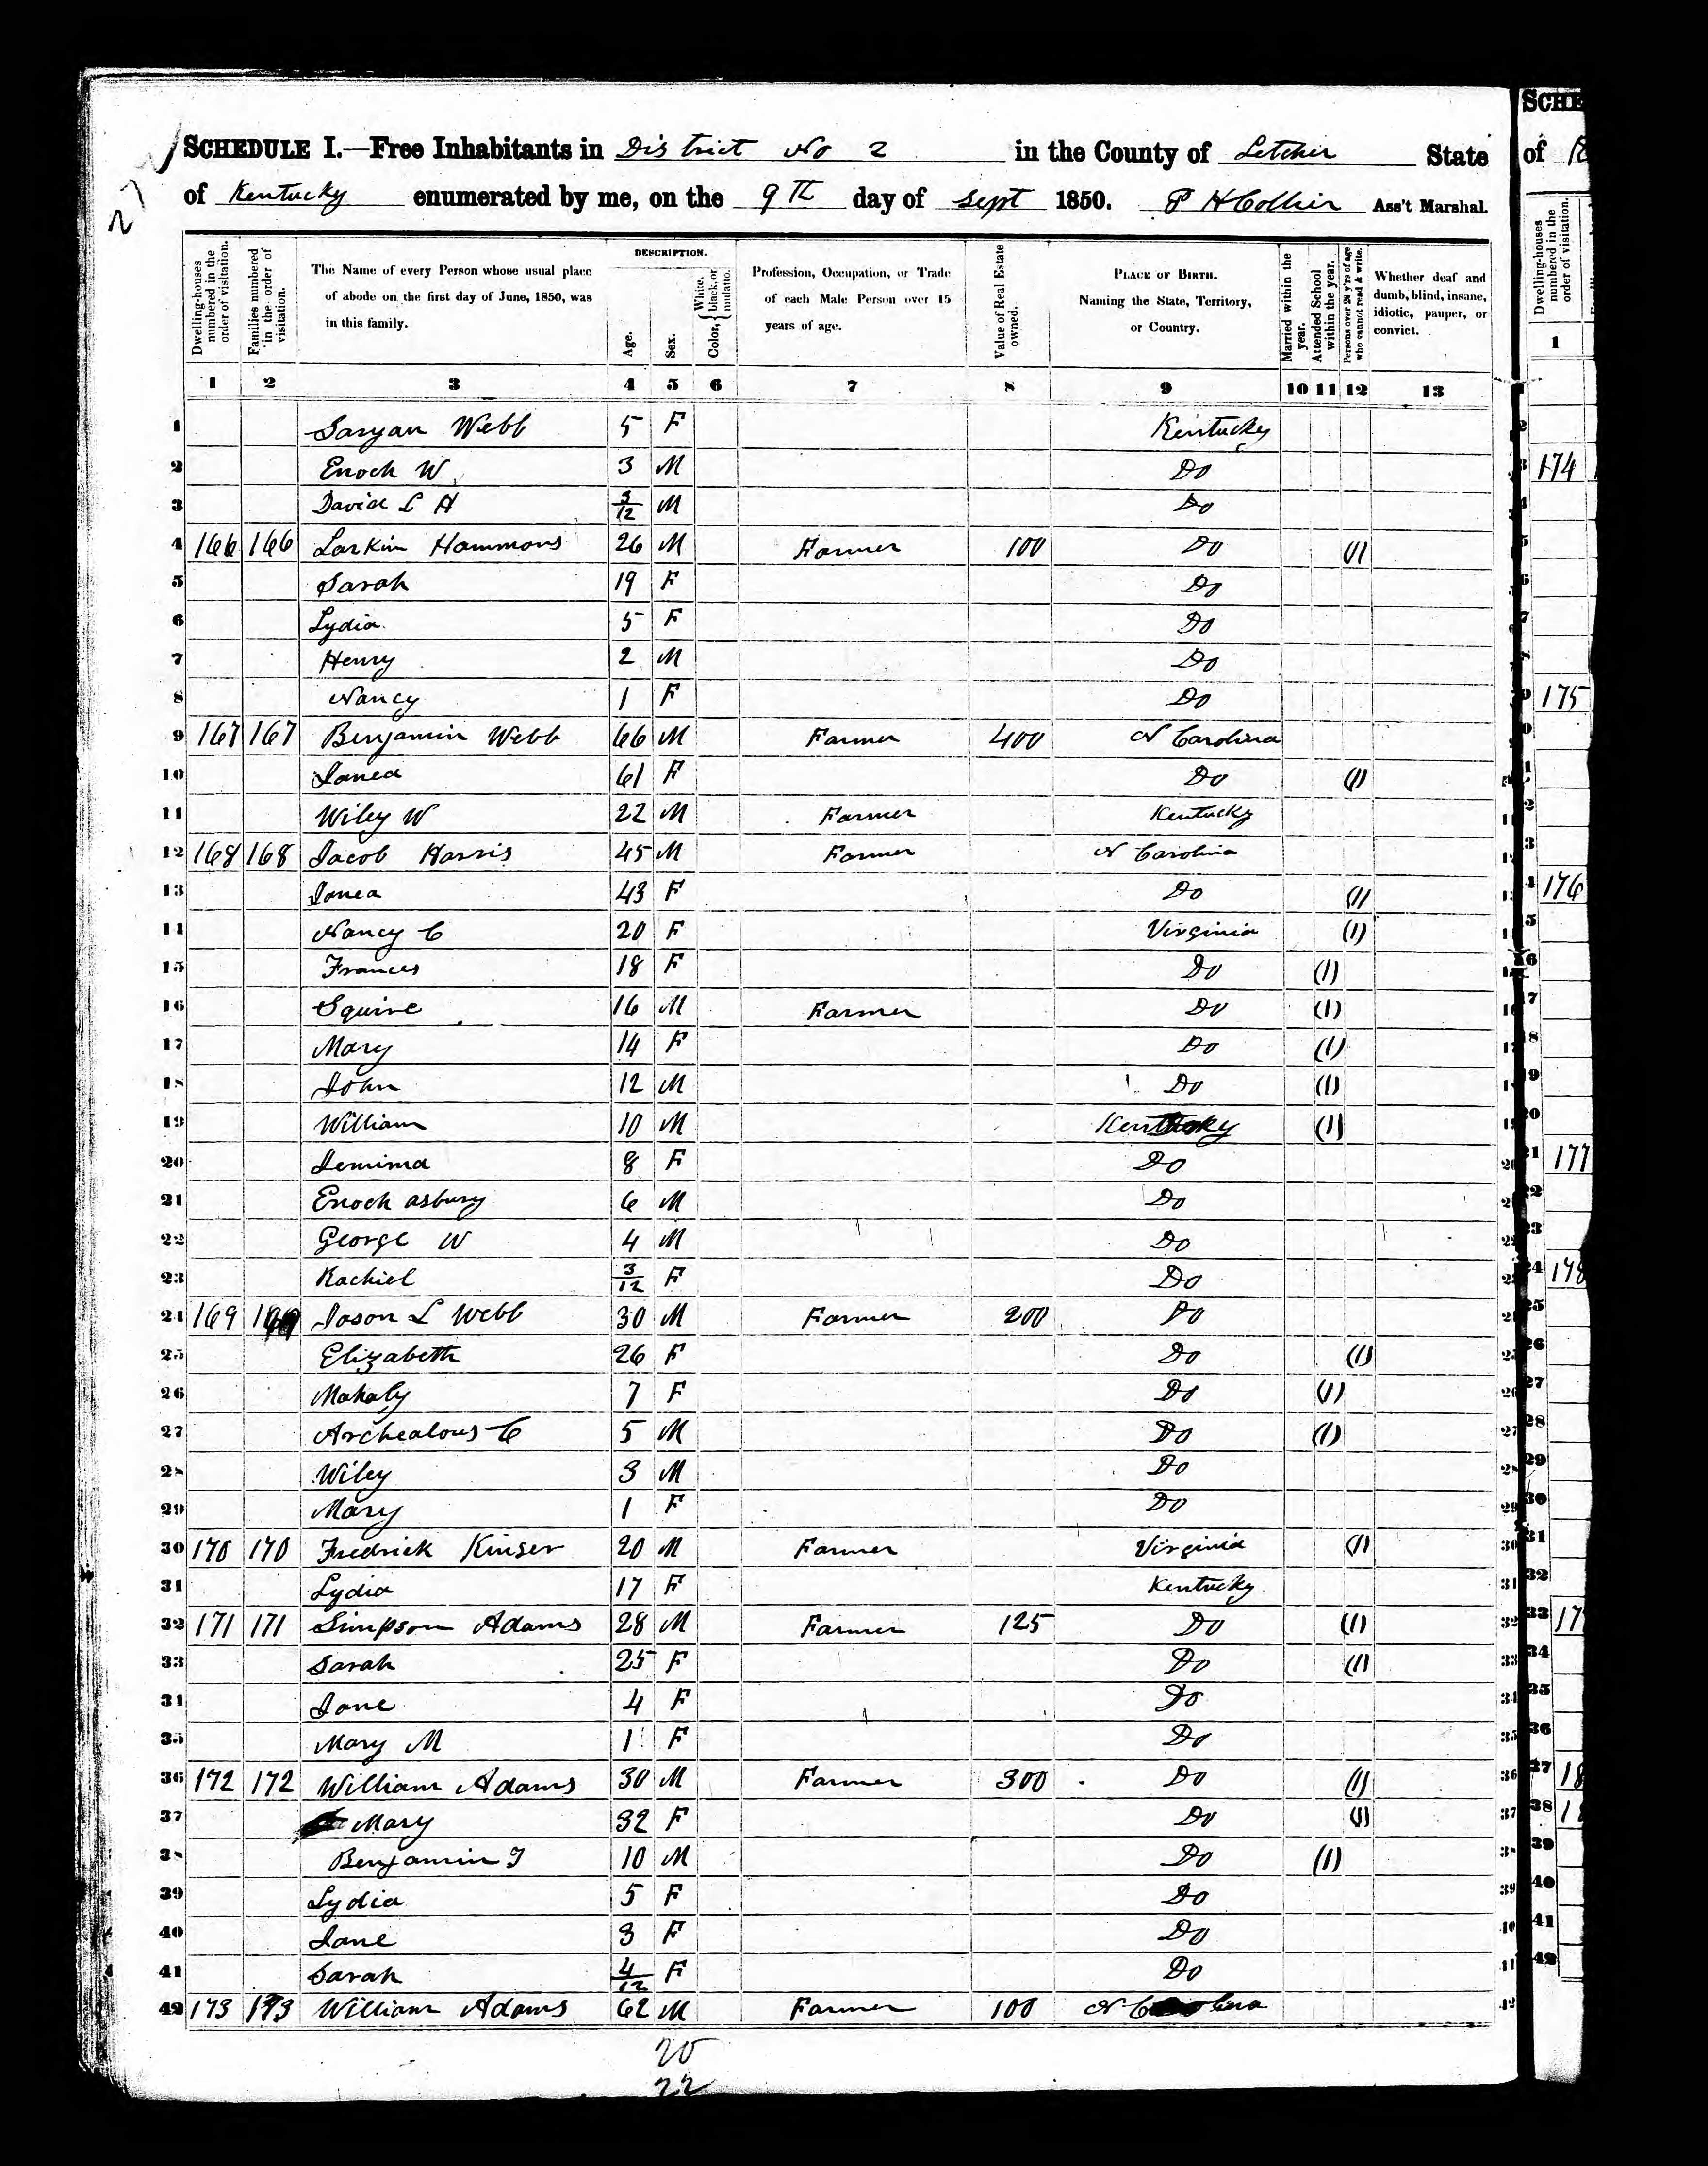 SCHEDULE I.—Free Inhabitants in District No 2 in the County of Letcher State
of Kentucky enumerated by me, on the 9th day of Sept 1850. P H Collier Ass't Marshal.
Dwelling-houses numbered in the order of visitation. Families numbered in the order of visitation. The Name of every Person whose usual place of abode on the first day of June, 1850, was in this family. DESCRIPTION. Age. Sex. Color, { White, black, or mulatto. Profession, Occupation, or Trade of each Male Person over 15 years of age. Value of Real Estate owned. PLACE OF BIRTH. Naming the State, Territory, or Country. Married within the year. Attended School within the year. Persons over 20 y'rs of age who cannot read & write. Whether deaf and dumb, blind, insane, idiotic, pauper, or convict.
1 2 3 4 5 6 7 8 9 10 11 12 13
1 Saryan Webb 5 F Kentucky
2 Enoch W 3 M Do
3 David L H 3/12 M Do
4 166 166 Larkin Hammons 26 M Farmer 100 Do (1)
5 Sarah 19 F Do
6 Lydia 5 F Do
7 Henry 2 M Do
8 Nancy 1 F Do
9 167 167 Benjamin Webb 66 M Farmer 400 N Carolina
10 Janea 61 F Do (1)
11 Wiley W 22 M Farmer Kentucky
12 168 168 Jacob Harris 45 M Farmer N Carolina
13 Janea 43 F Do (1)
14 Nancy C 20 F Virginia (1)
15 Frances 18 F Do (1)
16 Squire 16 M Farmer Do (1)
17 Mary 14 F Do (1)
18 John 12 M Do (1)
19 William 10 M Kentucky (1)
20 Jemima 8 F Do
21 Enoch asbury 6 M Do
22 George W 4 M Do
23 Rachiel 3/12 F Do
24 169 169 Jason L Webb 30 M Farmer 200 Do
25 Elizabeth 26 F Do (1)
26 Mahaly 7 F Do (1)
27 Archealous C 5 M Do (1)
28 Wiley 3 M Do
29 Mary 1 F Do
30 170 170 Fredrick Kinser 20 M Farmer Virginia (1)
31 Lydia 17 F Kentucky
32 171 171 Simpson Adams 28 M Farmer 125 Do (1)
33 Sarah 25 F Do (1)
34 Jane 4 F Do
35 Mary M 1 F Do
36 172 172 William Adams 30 M Farmer 300 Do (1)
37 Mary 32 F Do (1)
38 Benjamin F 10 M Do (1)
39 Lydia 5 F Do
40 Jane 3 F Do
41 Sarah 4/12 F Do
42 173 173 William Adams 62 M Farmer 100 N Carolina
20
22
SCHE
of
Dwelling-houses numbered in the order of visitation.
1
174
175
176
177
178